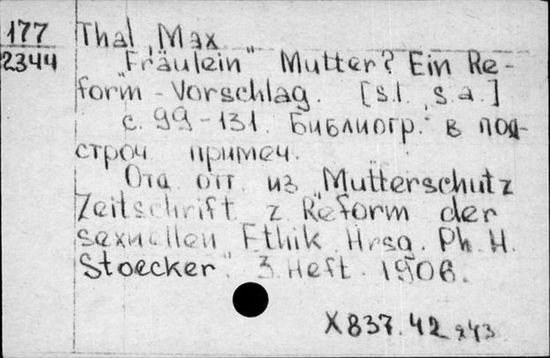 177
2344
Thal, Max
"Fräulein" Mutter? Ein Re-
form-Vorschlag. [s.l., s.a.]
с. 99-131. Библиогр. в под-
строч. примеч.
Отд. отт. из "Mutterschutz
Zeitschrift z. Reform der
sexuellen Ethik. Hrsg. Ph. H.
Stoecker". 3. Heft. 1906.
X837.42